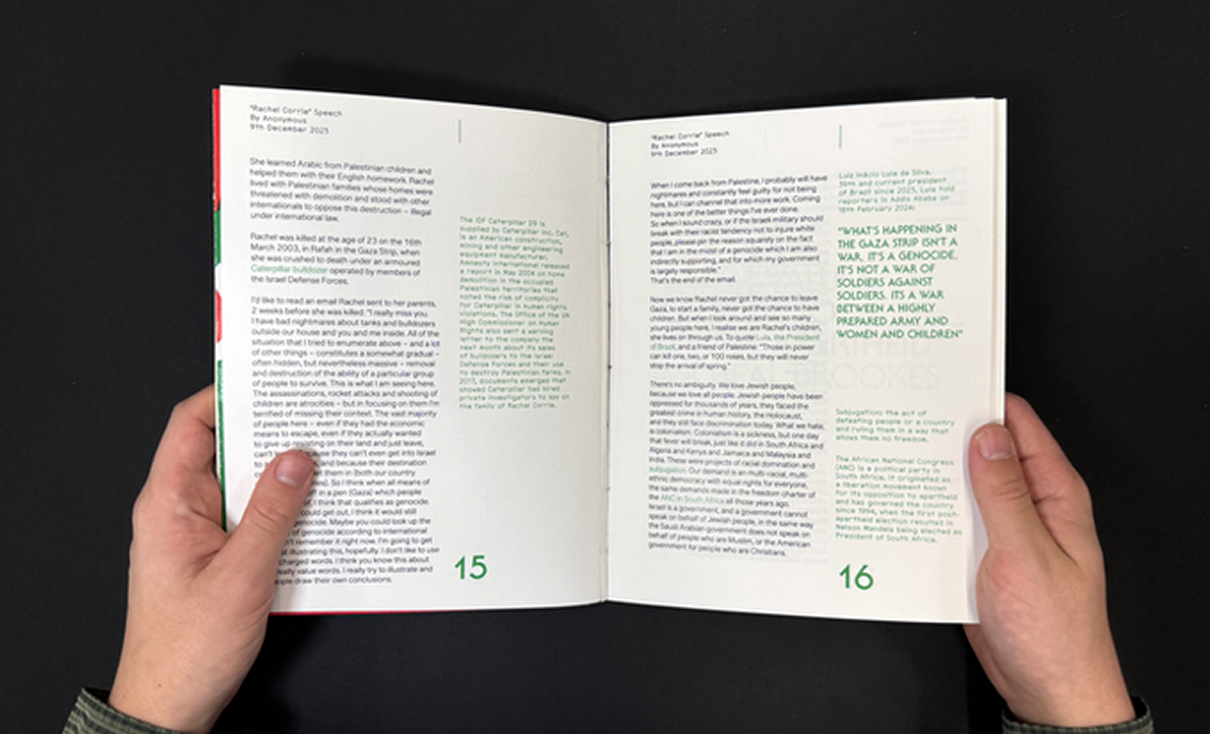 "Rachel Corrie" Speech
By Anonymous
9th December 2023
She learned Arabic from Palestinian children and
helped them with their English homework. Rachel
lived with Palestinian families whose homes were
threatened with demolition and stood with other
internationals to oppose this destruction – illegal
under international law.
Rachel was killed at the age of 23 on the 16th
March 2003, in Rafah in the Gaza Strip, when
she was crushed to death under an armoured
Caterpillar bulldozer operated by members of
the Israel Defense Forces.
I'd like to read an email Rachel sent to her parents,
2 weeks before she was killed. "I really miss you.
I have bad nightmares about tanks and bulldozers
outside our house and you and me inside. All of the
situation that I tried to enumerate above – and a lot
of other things – constitutes a somewhat gradual –
often hidden, but nevertheless massive – removal
and destruction of the ability of a particular group
of people to survive. This is what I am seeing here.
The assassinations, rocket attacks and shooting of
children are atrocities – but in focusing on them I'm
terrified of missing their context. The vast majority
of people here – even if they had the economic
means to escape, even if they actually wanted
to give up resisting on their land and just leave,
can't because they can't even get into Israel
to and because their destination
them in (both our country
So I think when all means of
in a pen (Gaza) which people
I think that qualifies as genocide.
could get out, I think it would still
genocide. Maybe you could look up the
of genocide according to international
remember it right now. I'm going to get
at illustrating this, hopefully. I don't like to use
charged words. I think you know this about
really value words. I really try to illustrate and
people draw their own conclusions.
The IDF Caterpillar D9 is
supplied by Caterpillar Inc. Cat,
is an American construction,
mining and other engineering
equipment manufacturer.
Amnesty International released
a report in May 2004 on home
demolition in the occupied
Palestinian territories that
noted the risk of complicity
for Caterpillar in human rights
violations. The Office of the UN
High Commissioner on Human
Rights also sent a warning
letter to the company the
next month about its sales
of bulldozers to the Israel
Defense Forces and their use
to destroy Palestinian farms. In
2017, documents emerged that
showed Caterpillar had hired
private investigators to spy on
the family of Rachel Corrie.
15
"Rachel Corrie" Speech
By Anonymous
9th December 2023
When I come back from Palestine, I probably will have
nightmares and constantly feel guilty for not being
here, but I can channel that into more work. Coming
here is one of the better things I've ever done.
So when I sound crazy, or if the Israeli military should
break with their racist tendency not to injure white
people, please pin the reason squarely on the fact
that I am in the midst of a genocide which I am also
indirectly supporting, and for which my government
is largely responsible."
That's the end of the email.
Now we know Rachel never got the chance to leave
Gaza, to start a family, never got the chance to have
children. But when I look around and see so many
young people here, I realise we are Rachel's children,
she lives on through us. To quote Lula, the President
of Brazil, and a friend of Palestine: "Those in power
can kill one, two, or 100 roses, but they will never
stop the arrival of spring."
There's no ambiguity. We love Jewish people,
because we love all people. Jewish people have been
oppressed for thousands of years, they faced the
greatest crime in human history, the Holocaust,
and they still face discrimination today. What we hate,
is colonialism. Colonialism is a sickness, but one day
that fever will break, just like it did in South Africa and
Algeria and Kenya and Jamaica and Malaysia and
India. These were projects of racial domination and
subjugation. Our demand is an multi-racial, multi-
ethnic democracy with equal rights for everyone,
the same demands made in the freedom charter of
the ANC in South Africa all those years ago.
Israel is a government, and a government cannot
speak on behalf of Jewish people, in the same way
the Saudi Arabian government does not speak on
behalf of people who are Muslim, or the American
government for people who are Christians.
Luiz Inácio Lula da Silva.
39th and current president
of Brazil since 2023, Lula told
reporters in Addis Ababa on
18th February 2024:
"WHAT'S HAPPENING IN
THE GAZA STRIP ISN'T A
WAR, IT'S A GENOCIDE,
IT'S NOT A WAR OF
SOLDIERS AGAINST
SOLDIERS. ITS A WAR
BETWEEN A HIGHLY
PREPARED ARMY AND
WOMEN AND CHILDREN"
Subjugation: the act of
defeating people or a country
and ruling them in a way that
allows them no freedom.
The African National Congress
(ANC) is a political party in
South Africa. It originated as
a liberation movement known
for its opposition to apartheid
and has governed the country
since 1994, when the first post-
apartheid election resulted in
Nelson Mandela being elected as
President of South Africa.
16